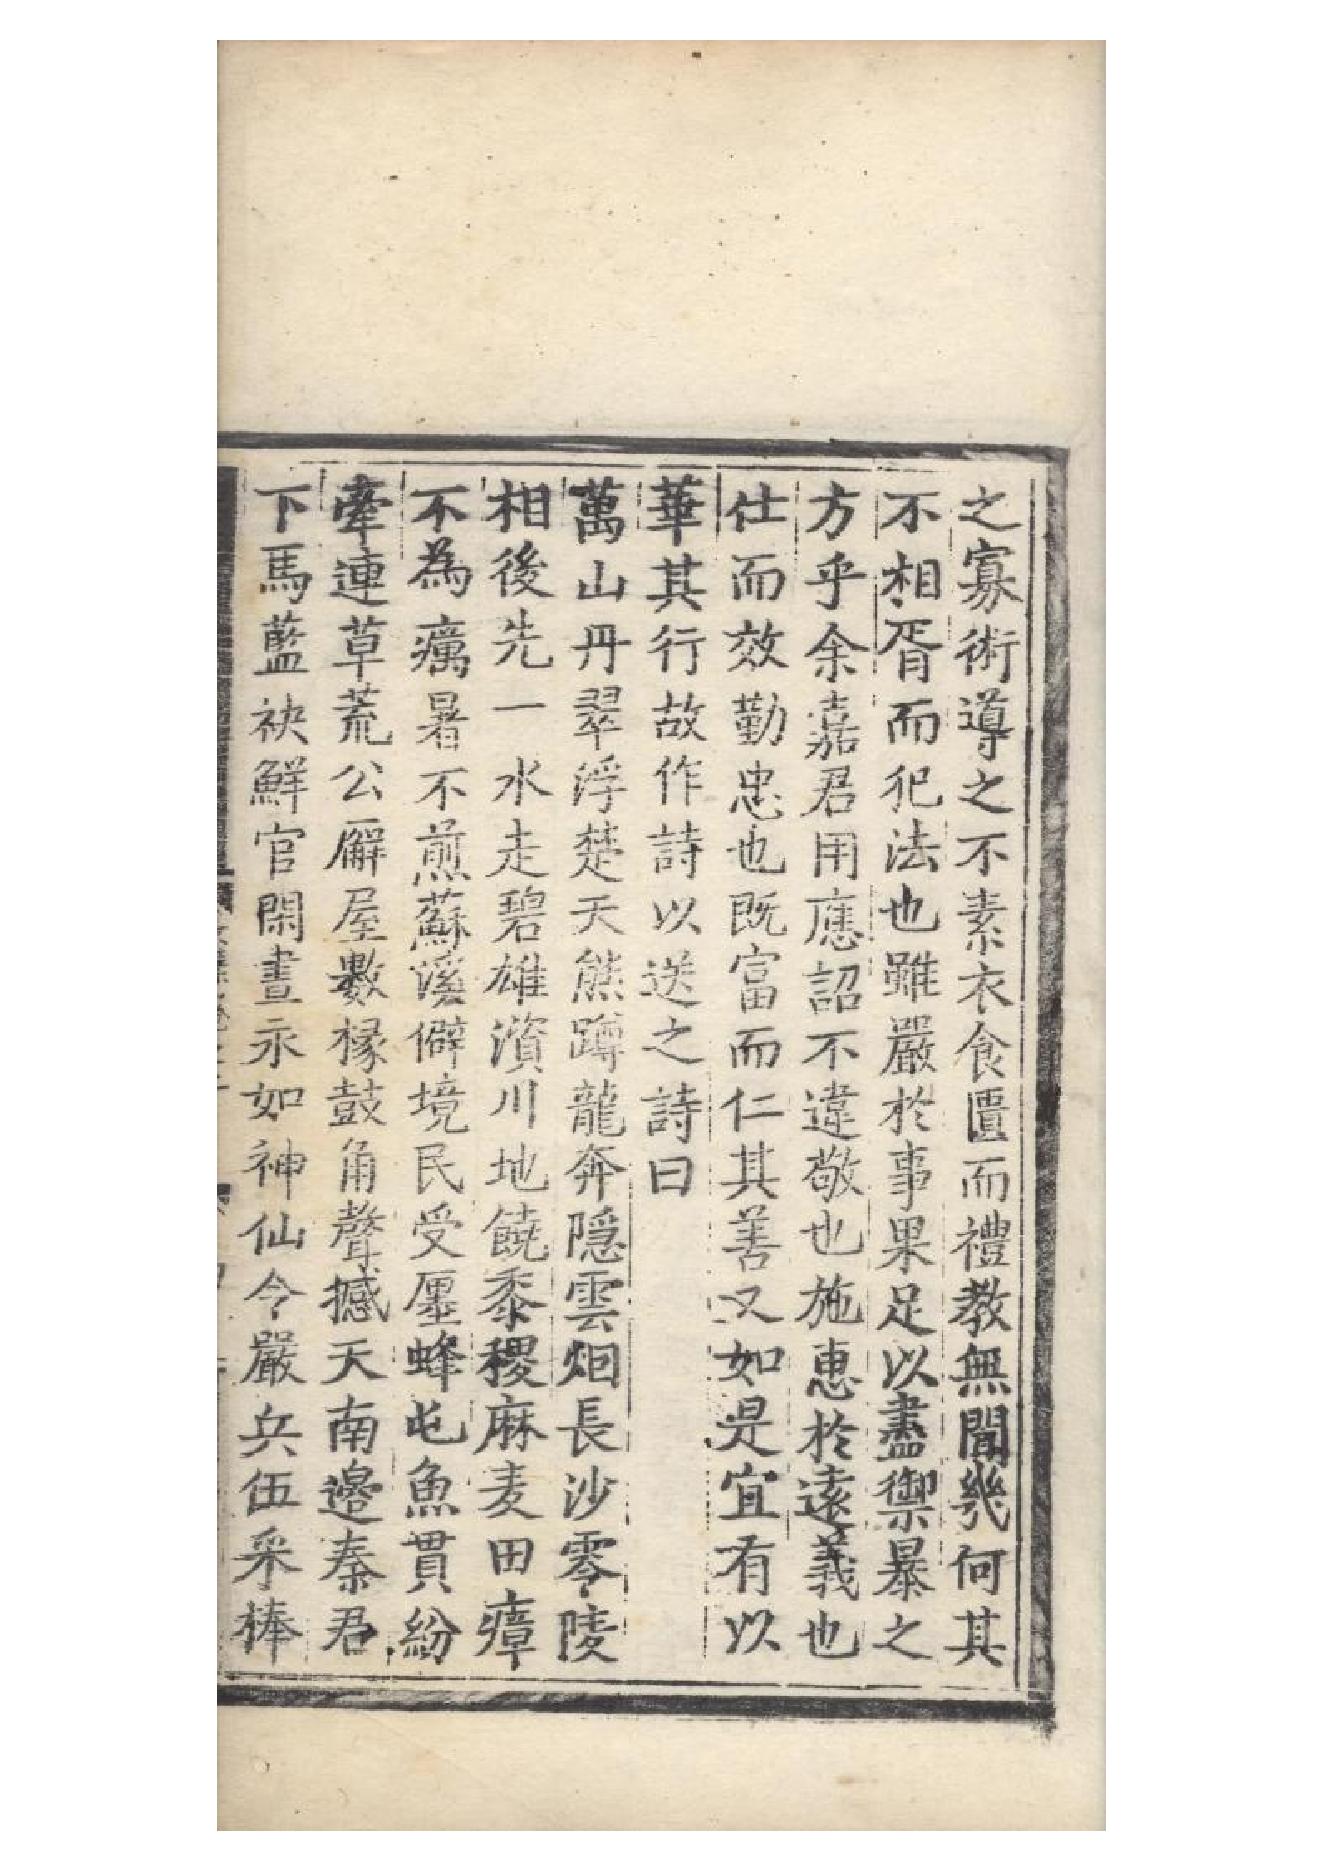 之寡術導之不素衣食匱而禮教無聞幾何其
不相胥而犯法也雖嚴於事果足以盡禦暴之
方乎余嘉君用應詔不違敬也施惠於遠義也
仕而效勤忠也既富而仁其善又如是宜有以
華其行故作詩以送之詩曰
萬山丹翠浮楚天熊蹲龍奔隱雲烟長沙零陵
相後先一水走碧雄濱川地饒黍稷麻麦田瘴
不為癘暑不煎蘇溪僻境民受廛蜂屯魚貫紛
牽連草荒公廨屋數椽鼓角聲撼天南邊秦君
下馬藍袂鮮官閑晝永如神仙令嚴兵伍釆棒